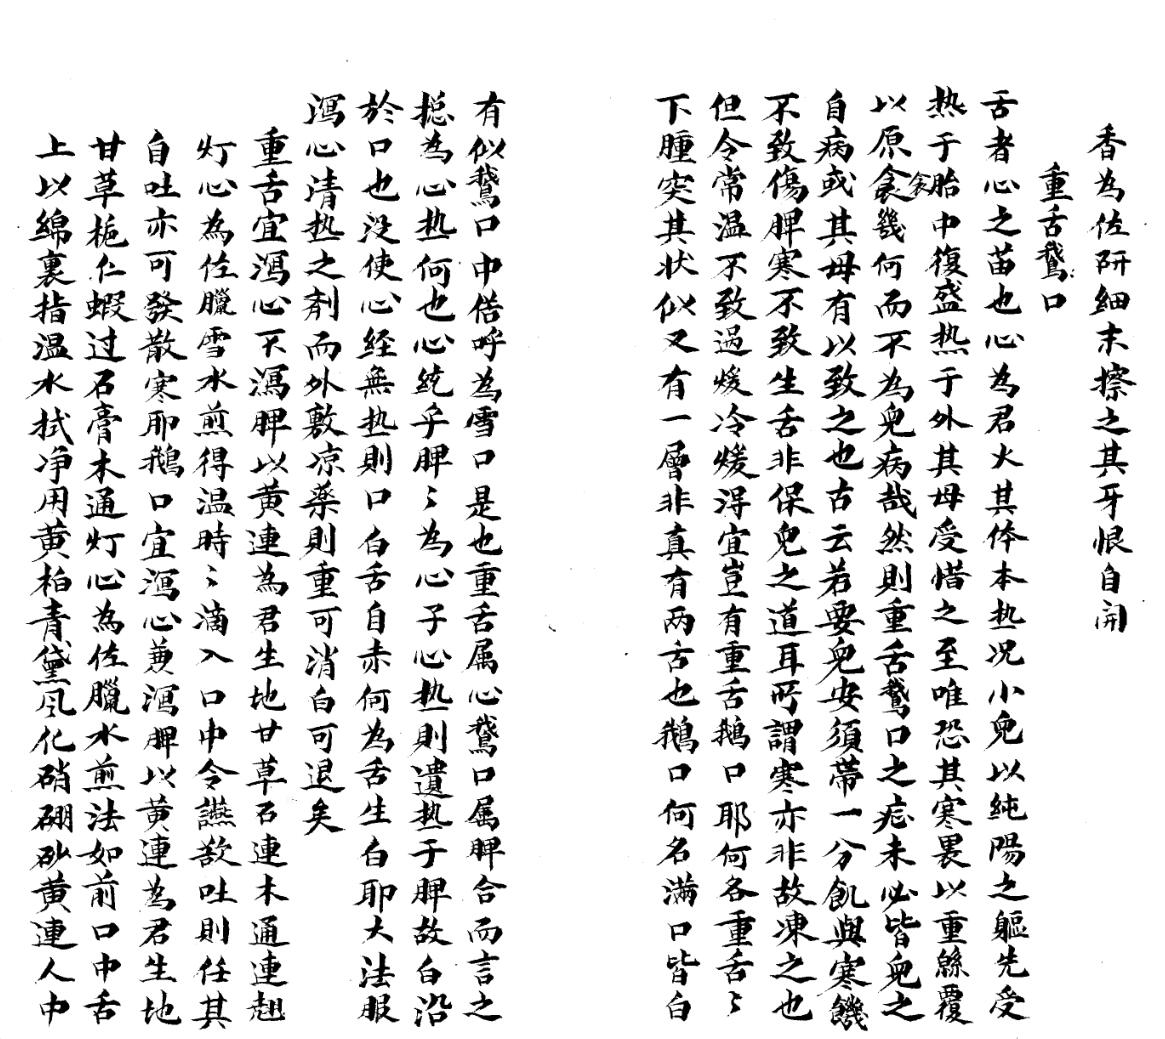 香為佐研細末擦之其牙恨自開
重舌鵞口
舌者心之苗也心為君火其体本热况小兒以純陽之軀先受
热于胎中復盛热于外其母受惜之至唯恐其寒畏以重緜覆
以原衾衾幾何而不為兒病哉然則重舌鵞口之症未必皆兒之
自病或其母有以致之也古云若要兒安須帶一分飢與寒饑
不致傷脾寒不致生舌非保兒之道耳所謂寒亦非故凍之也
但令常温不致過煖冷煖淂宜豈有重舌鵝口耶何各重舌〻
下腫突其状似又有一層非真有两舌也鵝口何名满口皆白
有似鵞口中俗呼為雪口是也重舌属心鵞口属脾合而言之
摠為心热何也心統乎脾〻為心子心热則遺热于脾故白沿
於口也没使心经無热則口白舌自赤何為舌生白耶大法服
瀉心清热之剤而外敷凉藥則重可消白可退矣
重舌宜瀉心下瀉脾以黄連為君生地甘草石連木通連翹
灯心為佐臘雪水煎得温時〻滴入口中令嚥欲吐則任其
自吐亦可發散寒耶鵝口宜瀉心兼瀉脾以黄連為君生地
甘草梔仁蝦过石膏木通灯心為佐臘水煎法如前口中舌
上以綿裏指温水拭净用黄柏青黛风化硝硼砂黄連人中